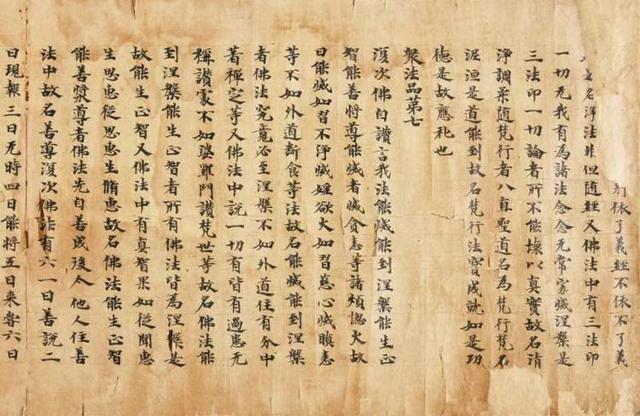 別依了義經不依不了義
名淨法非但随經又佛法中有三法印
一切无我有為諸法念念无常寂滅涅槃是
三法印一切論者所不能壞以真實故名清
淨調柔随梵行者八直聖道名為梵行梵名
泥洹是道能到故名梵行法寶成就如是功
德是故應礼也
衆法品第七
復次佛自讚言我法能滅能到涅槃能生正
智能善將導能滅者滅貪恚等諸煩惱火故
曰能滅如習不淨滅婬欲火如習慈心滅瞋恚
等不如外道断食等法故名能滅能到涅槃
者佛法究竟必至涅槃不如外道住有分中
著禪定等又佛法中説一切有皆有過患无
稱讚處不如婆羅門讚梵世等故名佛法能
到涅槃能生正智者所有佛法皆為涅槃是
故能生正智又佛法中有真智果如從聞惠
生思惠從思惠生脩惠故名佛法能生正智
能善將導者佛法先自善成後令他人住善
法中故名善導復次佛法有六一曰善説二
曰現報三曰无時四曰能將五曰來嘗六曰